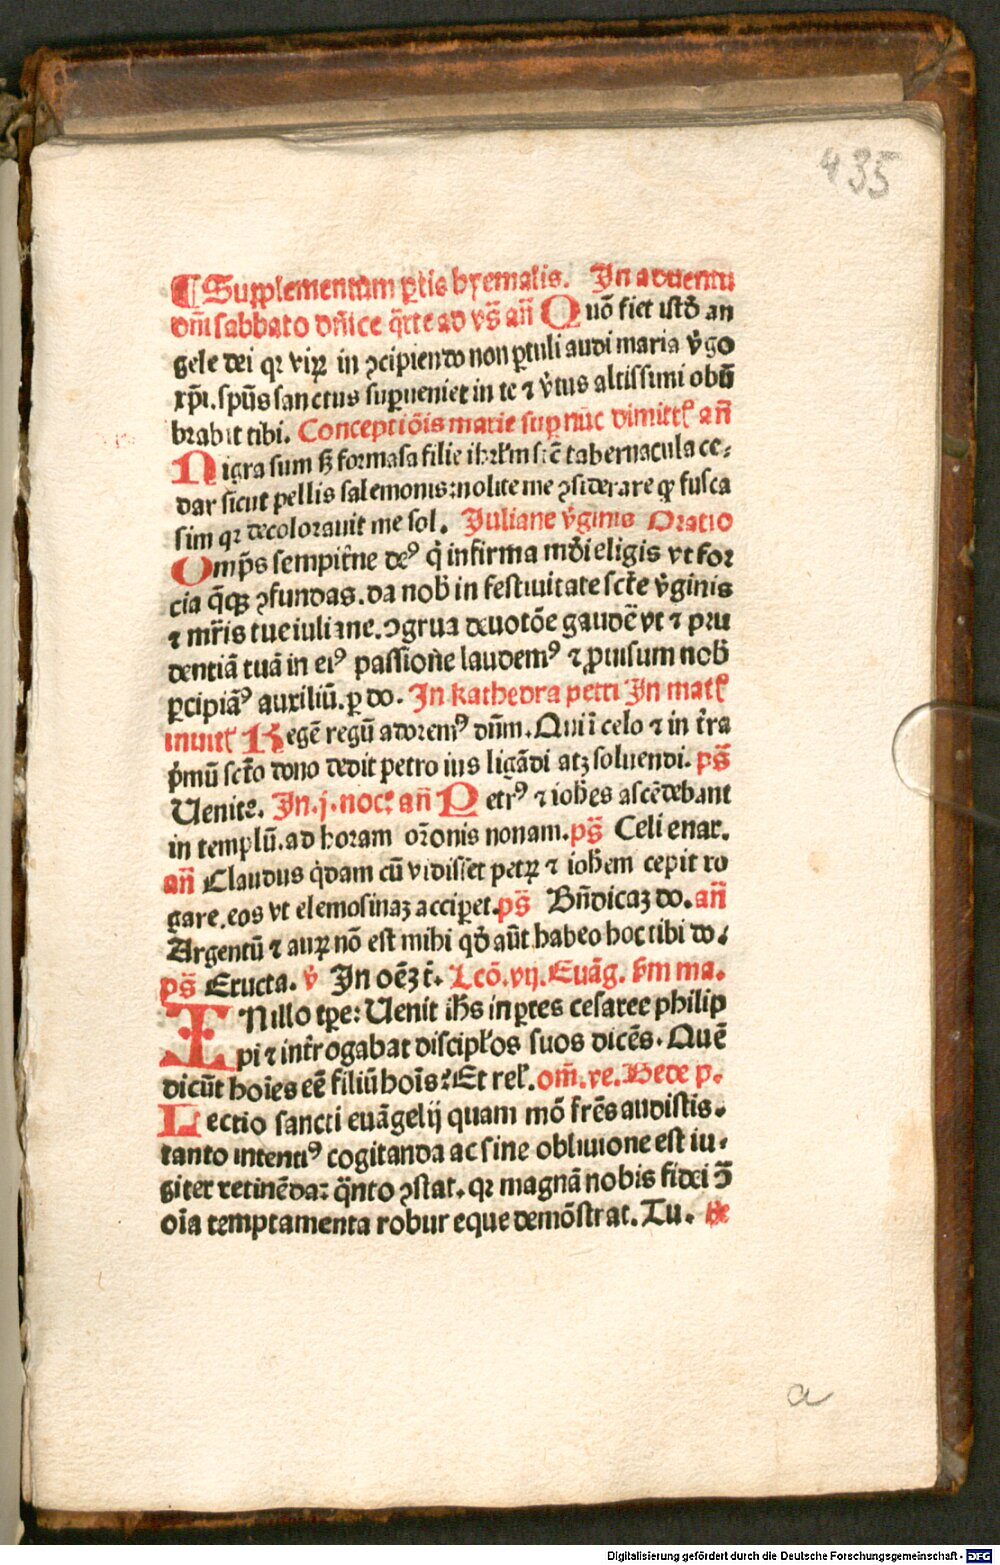 435
¶ Supplementum ꝑtis hyemalis. In aduentu
dn̄i sabbato dn̄ice q̄rte ad vs̄ an̄ Quō fiet istđ an
gele dei qꝛ viꝝ in ꝯcipiendo non ꝑtuli audi maria v̓go
xp̄i. spūs sanctus suꝑueniet in te ⁊ v̓tus altissimi obū
brabit tibi. Conceptiōis marie suꝑ nūc dimittꝭ an̄
Nigra sum sꝫ formosa filie ihrl̄m sic̄ tabernacula ce-
dar sicut pellis salemonis: nolite me ꝯsiderare ꝙ fusca
sim qꝛ decolorauit me sol. Juliane v̓ginis Oratio
Omp̄s sempit̓ne deꝰ q̓ infirma mūdi eligis vt for
cia q̄qꝫ ꝯfundas. da nob̄ in festiuitate scte̓ v̓ginis
⁊ mr̄is tue iuliane. ꝯgrua deuotōe gaudē̓ vt ⁊ pru
dentiā tuā in eiꝰ passione̓ laudemꝰ ⁊ ꝓuisum nob̄
ꝑcipiāꝰ auxiliū. ꝑ do. In kathedra petri In matꝭ
inuitꝭ Regē regū adoremꝰ dn̄m. Qui ī celo ⁊ in t̓ra
p̓mū scto̓ dono dedit petro ius ligādi atꝫ soluendi. ps̄
Uenite. In .j. noc. an̄ Petrꝰ ⁊ ioh̄es ascēdebant
in templū. ad horam or̄onis nonam. ps̄ Celi enar.
an̄ Claudus q̓dam cū vidisset petꝝ ⁊ ioh̄em cepit ro
gare. eos vt elemosinaꝫ acciꝑet. ps̄ Bn̄dicaꝫ do. an̄
Argentū ⁊ auꝝ nō est mihi qđ aūt habeo hoc tibi do.
ps̄ Eructa. v̓ In oēꝫ t̓. Lcō. vij. Euāg. s̓m ma.
IN illo tꝑe: Uenit ih̄s in ꝑtes cesaree philip
pi ⁊ int̓rogabat discipl̓os suos dicēs. Quē
dicūt hoīes eē filiū hoīs: Et relꝭ. om̄. ve. Bede p.
Lectio sancti euāgelij quam mō fr̄es audistis.
tanto intentiꝰ cogitanda ac sine obliuione est iu-
giter retinēda: q̄nto ꝯstat. qꝛ magnā nobis fidei ꝯ̄
oīa temptamenta robur eque demōstrat. Tu. Re
a
Digitalisierung gefördert durch die Deutsche Forschungsgemeinschaft - DFG